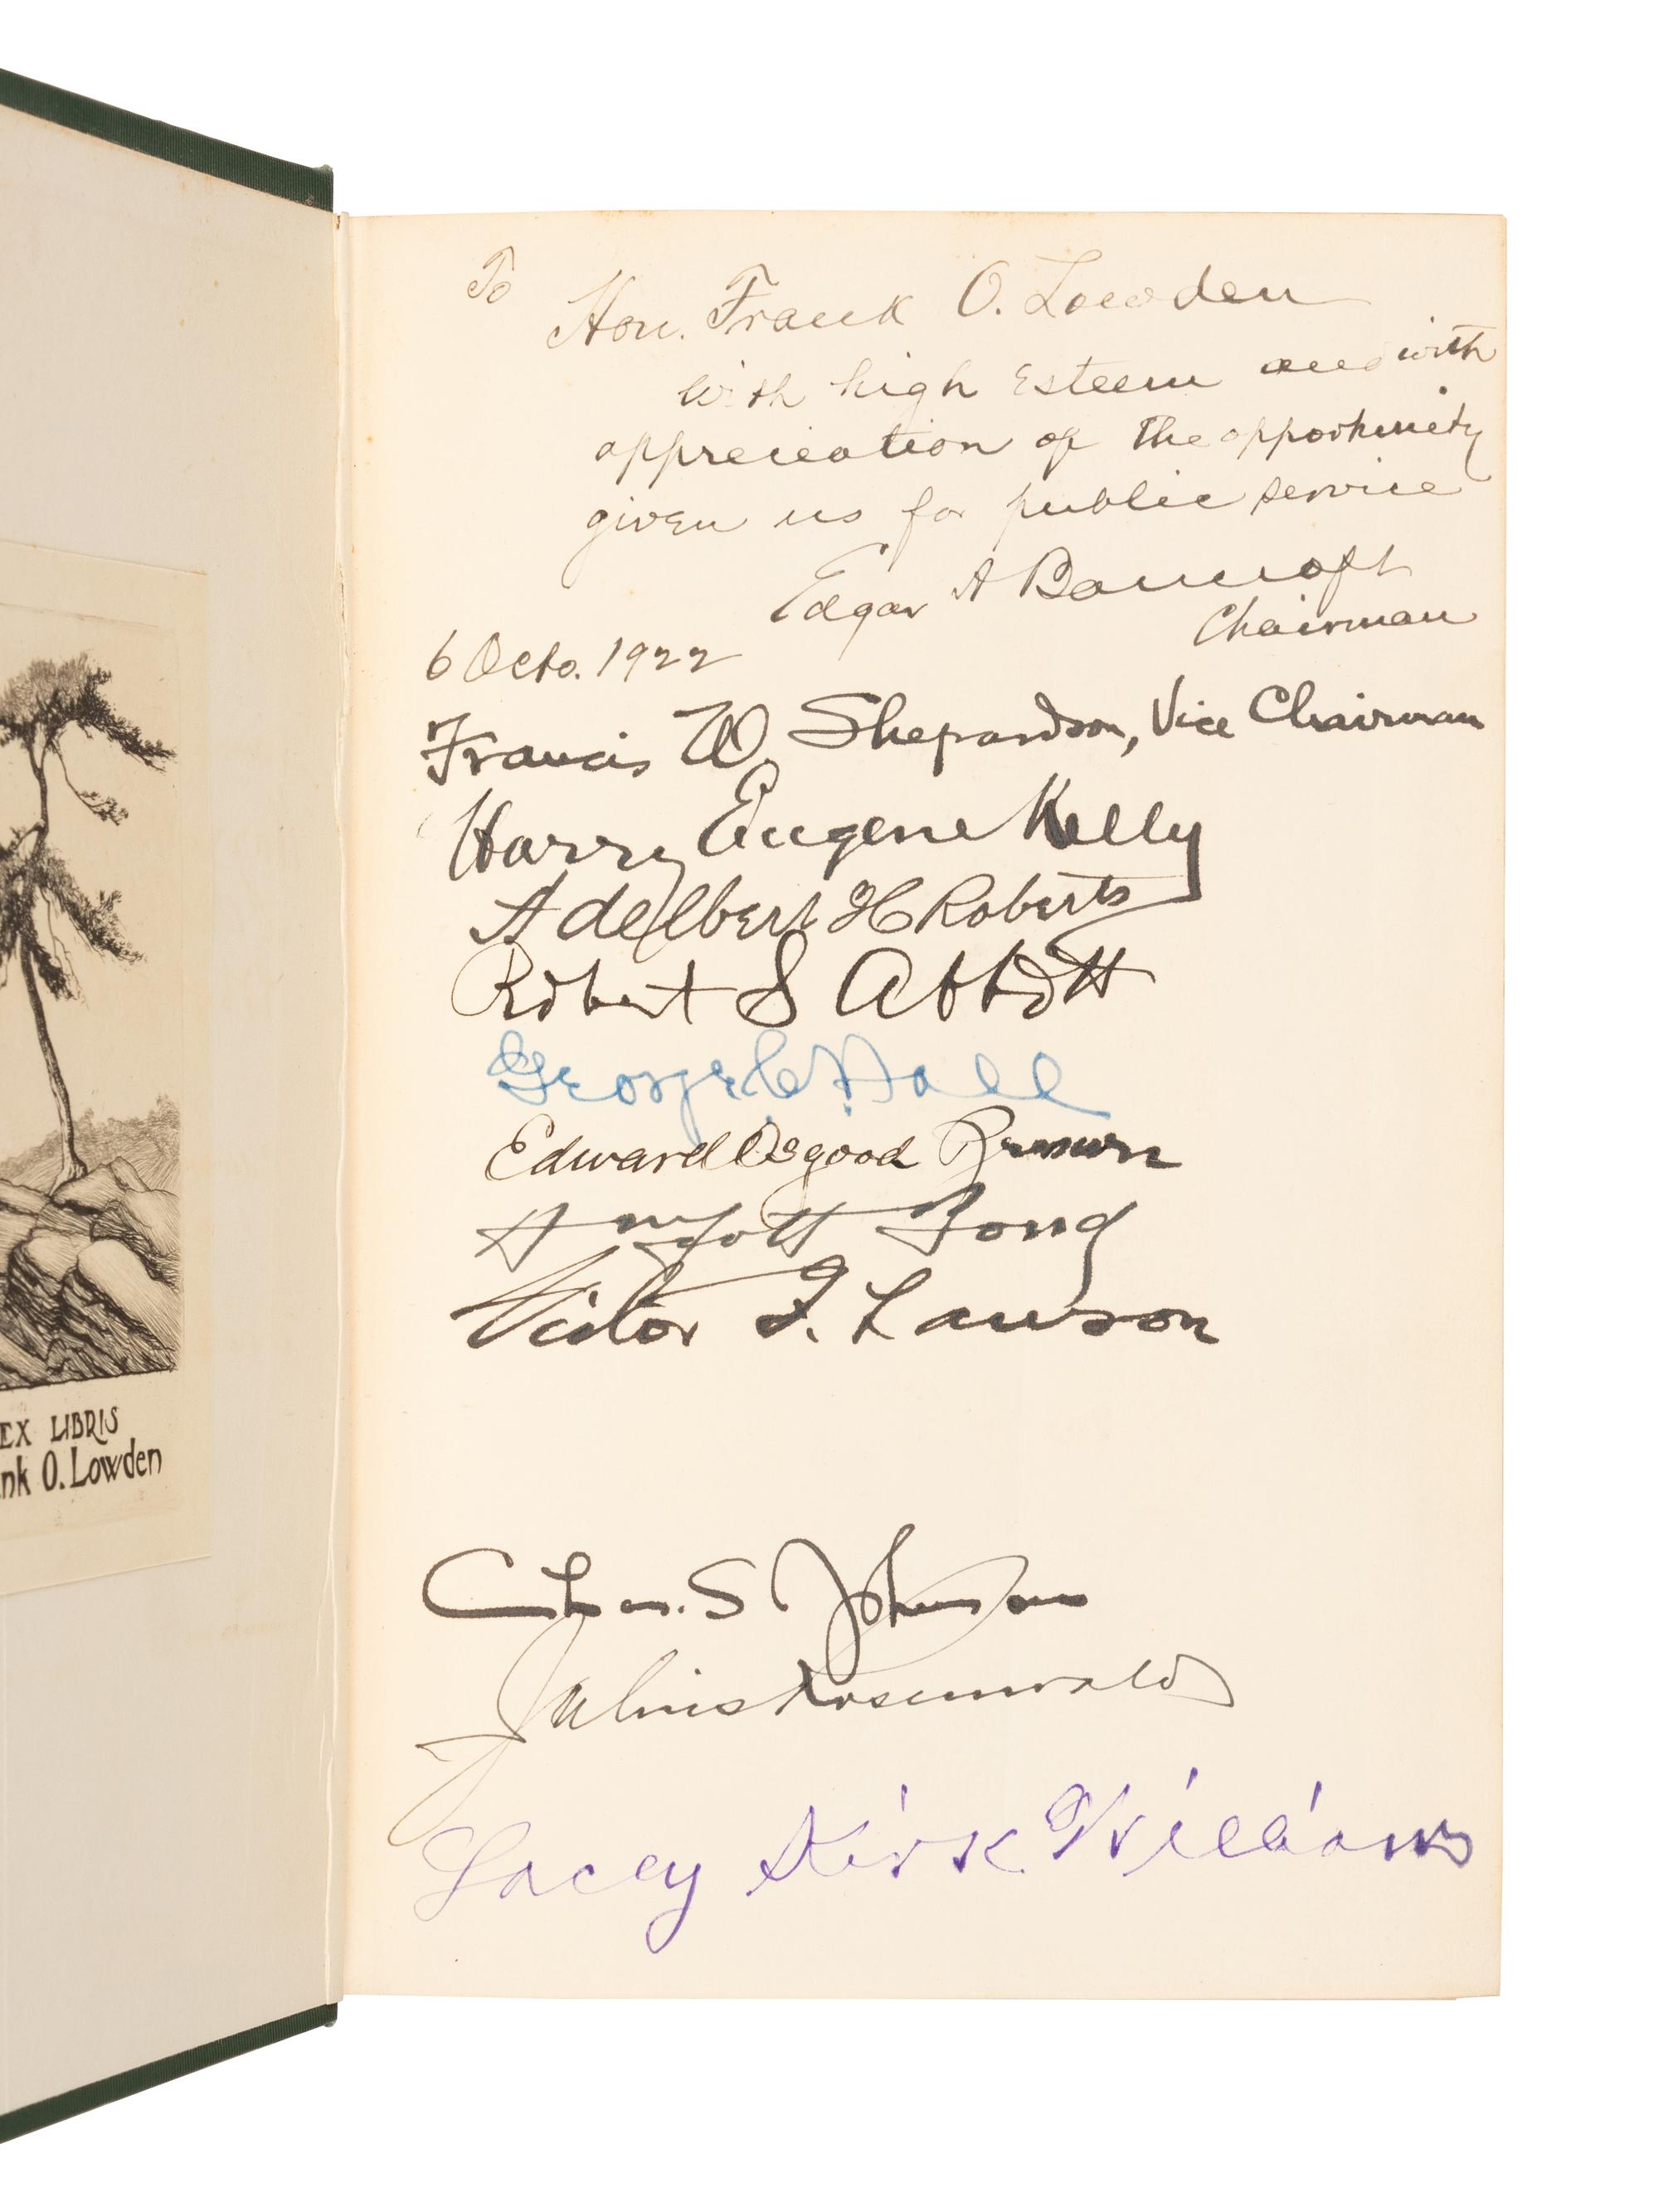 EX LIBRIS
nk O. Lowden
To
Hon. Frank O. Lowden
with high Esteem and with
appreciation of the opportunity
given us for public service
Edgar A Bancroft
Chairman
6 Octo. 1922
Francis W. Shepardson, Vice Chairman
Harry Eugene Kelly
Adelbert H Roberts
Robert S Abbott
George C Hall
Edward Osgood Brown
Victor F. Lawson
Chas. S Johnson
Julius Rosenwald
Lacey Kirk Williams